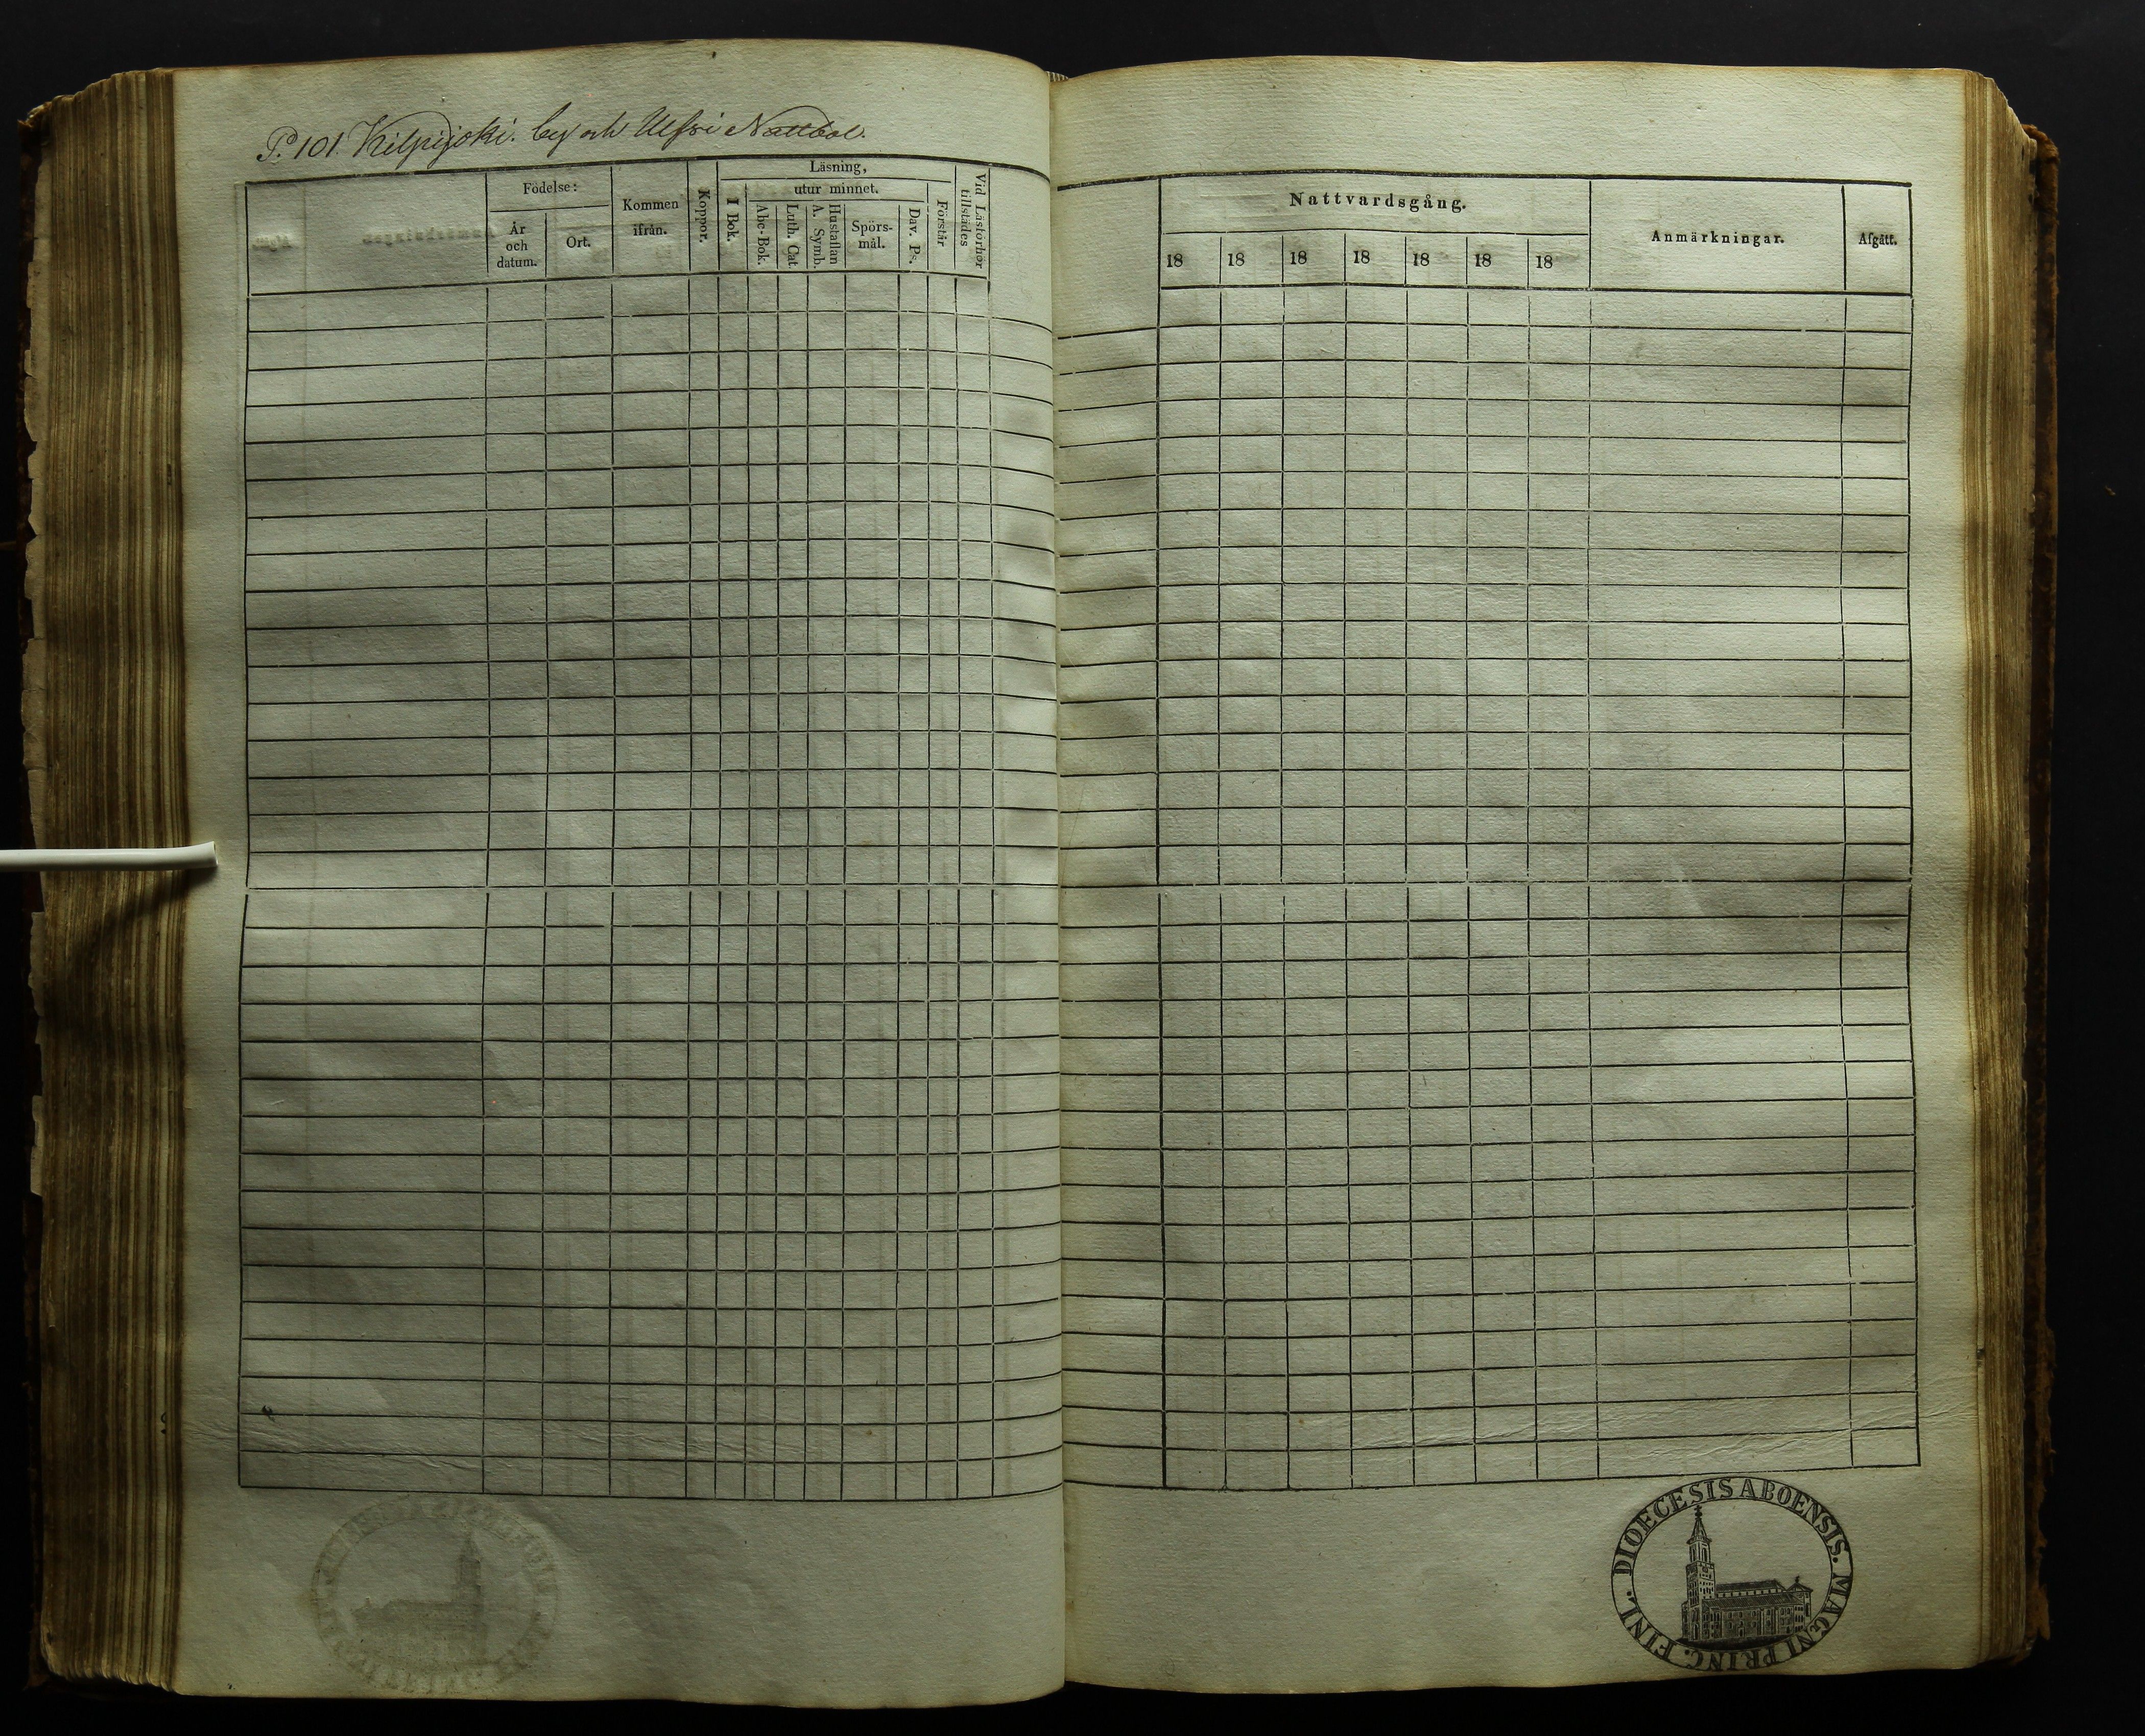 P. 101. Kilpijoki. by och Ulfsri Nattbol.
Läsning,
Födelse:
utur minnet.
Kommen
ifrån.
Koppor.
I Bok.
Abc-Bok.
Luth. Cat
A. Symb.
Hustaflan
Spörs-
mål.
Dav. Ps.
Förstår
Vid Läsförhör
tillstädes
År
och
datum.
Ort.
Nattvardsgång.
Anmärkningar.
Afgått.
18 18 18 18 18 18 18
DIOECESIS ABOENSIS. MAGNI PRINC. FINL.